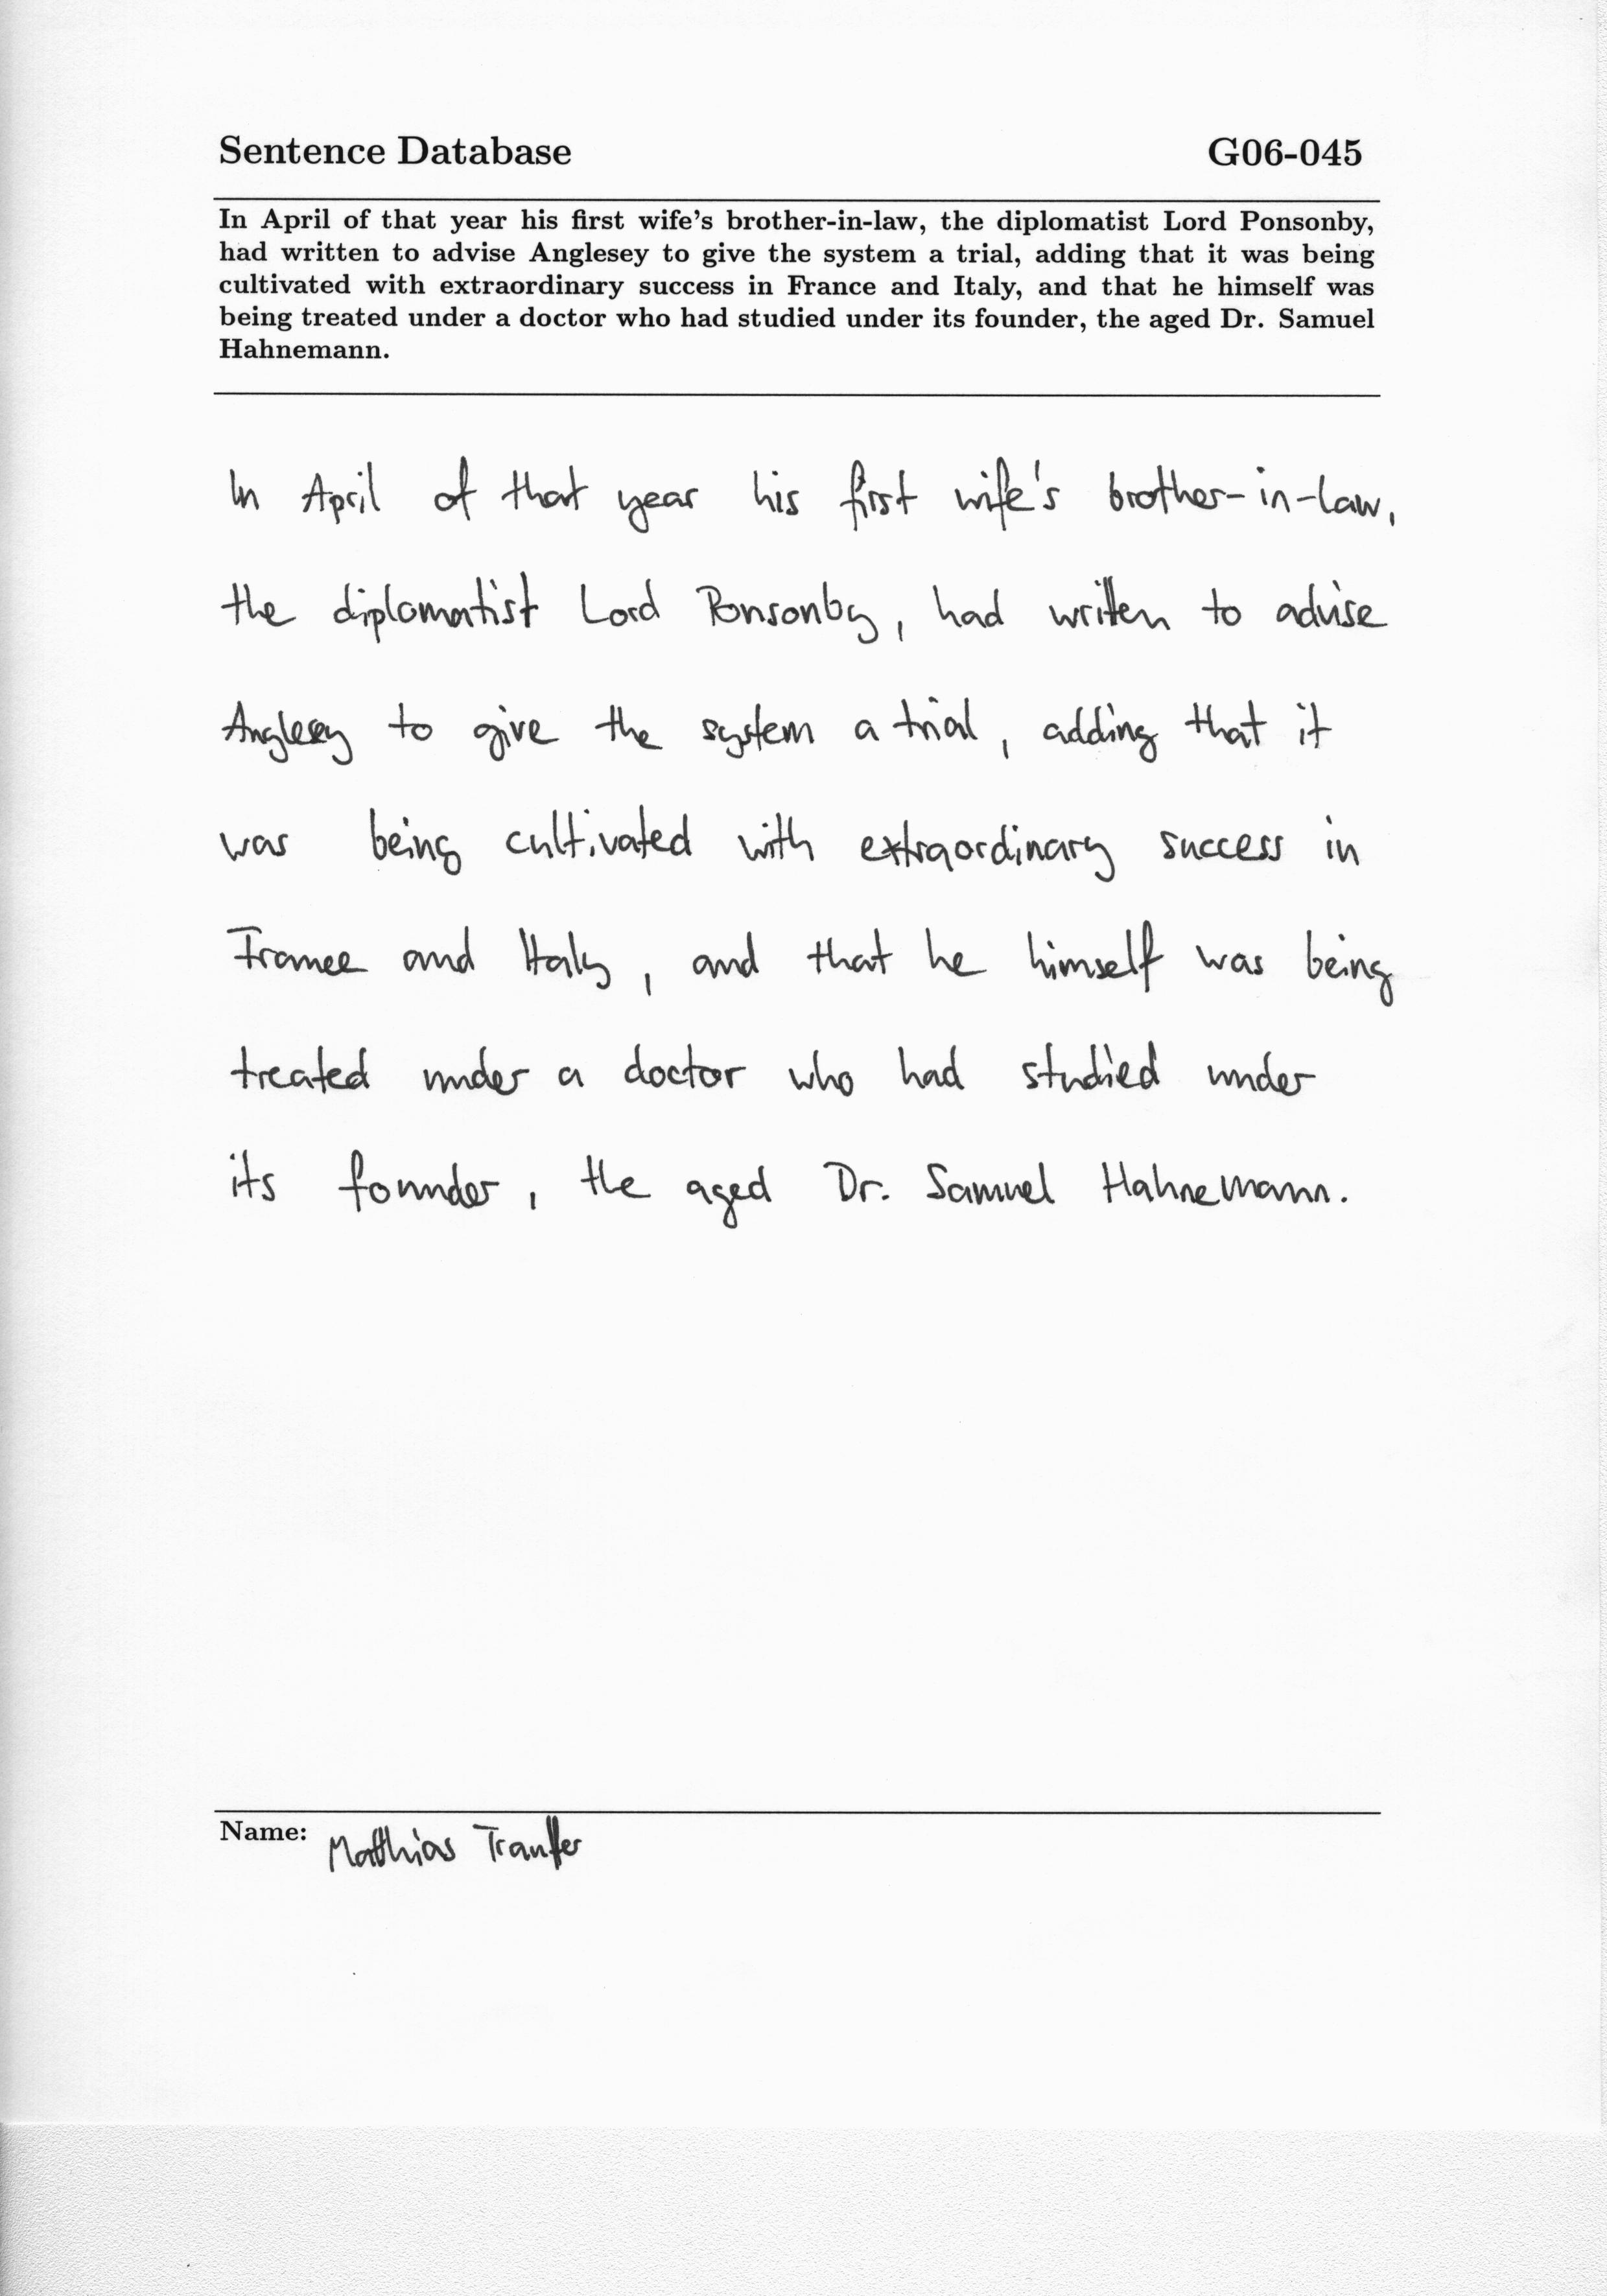 Sentence Database G06-045
In April of that year his first wife's brother-in-law, the diplomatist Lord Ponsonby,
had written to advise Anglesey to give the system a trial, adding that it was being
cultivated with extraordinary success in France and Italy, and that he himself was
being treated under a doctor who had studied under its founder, the aged Dr. Samuel
Hahnemann.
In April of that year his first wife's brother-in-law,
the diplomatist Lord Ponsonby, had written to advise
Anglesey to give the system a trial, adding that it
was being cultivated with extraordinary success in
France and Italy, and that he himself was being
treated under a doctor who had studied under
its founder, the aged Dr. Samuel Hahnemann.
Name: Matthias